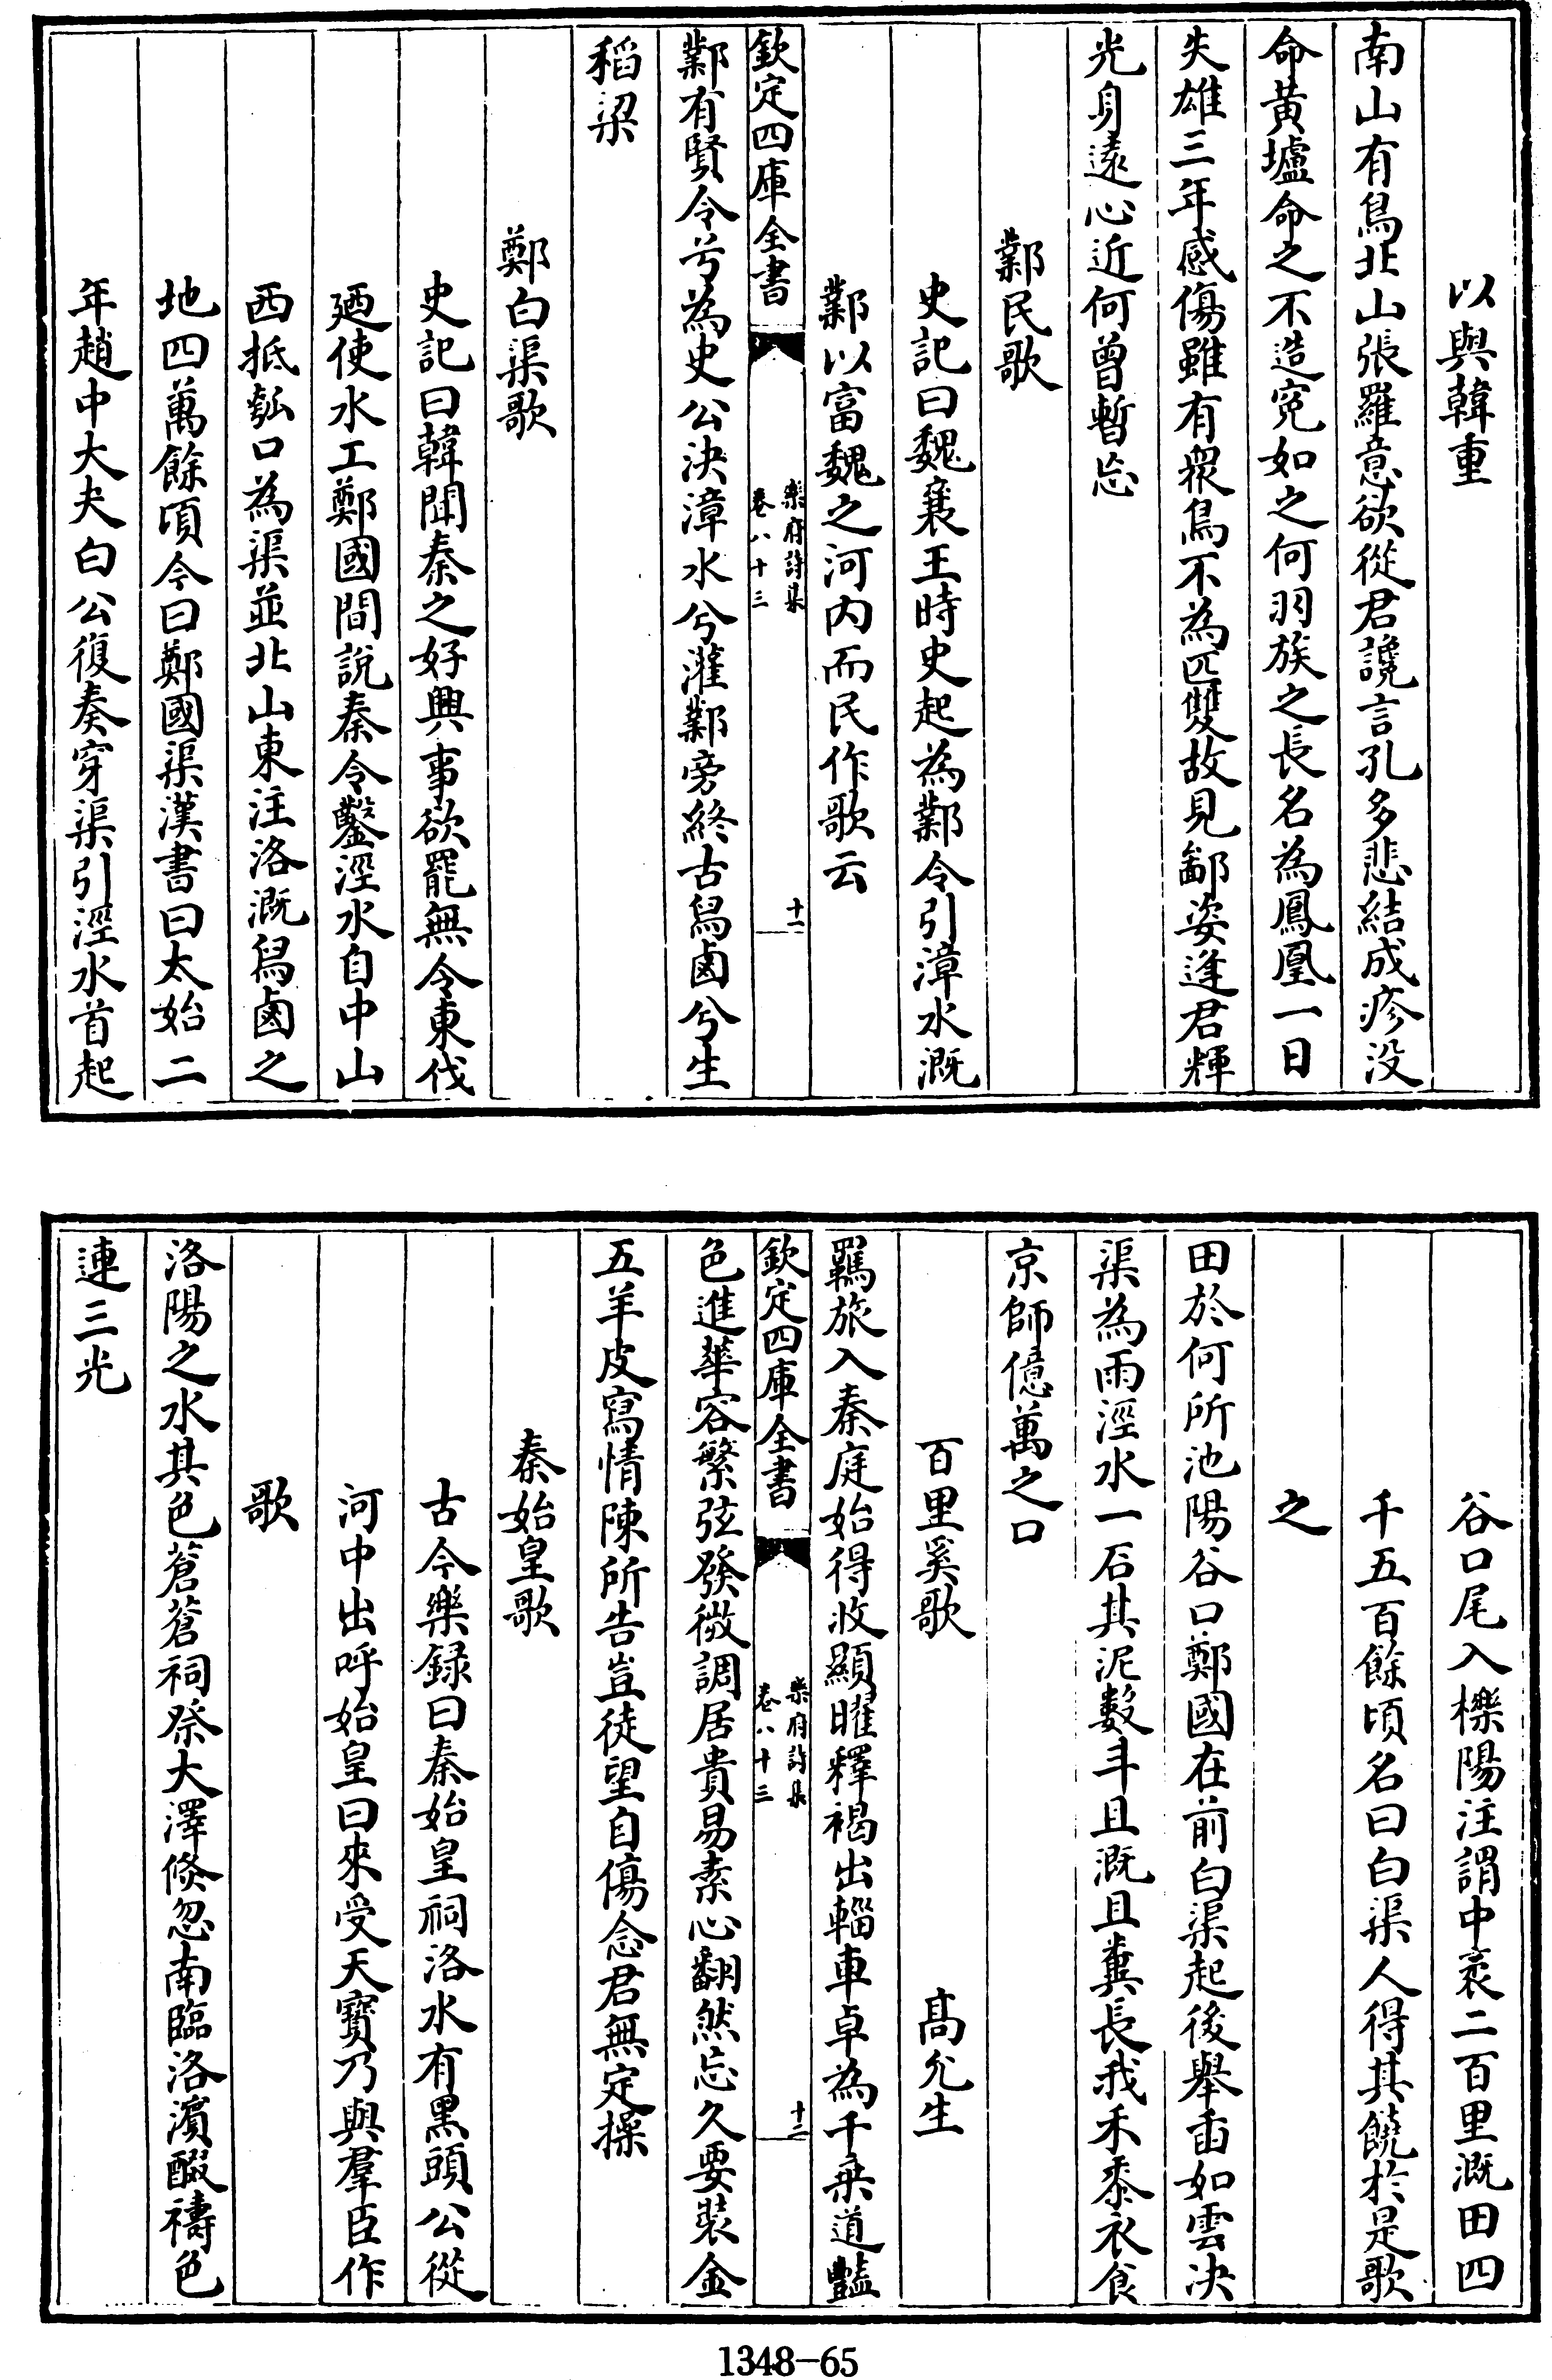 以與韓重
南山有鳥北山張羅意欲從君讒言孔多悲結成疹没
命黄壚命之不造寃如之何羽族之長名為鳳凰一日
失雄三年感傷雖有衆鳥不為匹雙故見鄙姿逢君輝
光身遠心近何曾暫忘
鄴民歌
史記曰魏襄王時史起為鄴令引漳水溉
鄴以富魏之河内而民作歌云
欽定四庫全書
樂府詩集
卷八十三
十一
鄴有賢令兮為史公決漳水兮灌鄴旁終古舄鹵兮生
稻梁
鄭白渠歌
史記曰韓聞秦之好興事欲罷無令東伐
廼使水工鄭國間說秦令鑿涇水自中山
西抵瓠口為渠並北山東注洛溉舄鹵之
地四萬餘頃今曰鄭國渠漢書曰太始二
年趙中大夫白公復奏穿渠引涇水首起
谷口尾入櫟陽注謂中袤二百里溉田四
千五百餘頃名曰白渠人得其饒於是歌
之
田於何所池陽谷口鄭國在前白渠起後舉臿如雲决
渠為雨涇水一石其泥數斗且溉且糞長我禾黍衣食
京師億萬之口
百里奚歌 高允生
羈旅入秦庭始得收顯曜釋褐出輜車卓為千乗道豔
欽定四庫全書
樂府詩集
卷八十三
十二
色進華容繁弦發微調居貴易素心翻然忘久要裝金
五羊皮寫情陳所告豈徒望自傷念君無定操
秦始皇歌
古今樂録曰秦始皇祠洛水有黑頭公從
河中出呼始皇曰來受天寶乃與羣臣作
歌
洛陽之水其色蒼蒼祠祭大澤倐忽南臨洛濵醊禱色
連三光
1348-65